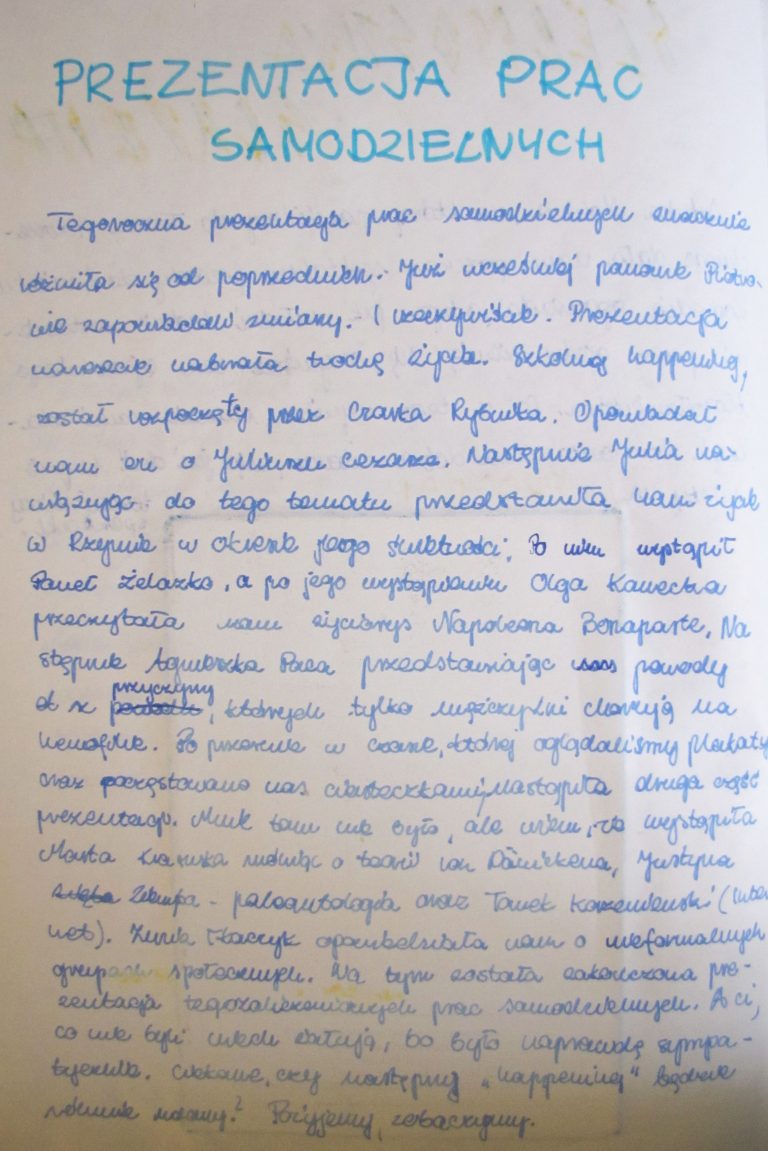 PREZENTACJA PRAC
SAMODZIELNYCH
Tegoroczna prezentacja prac samodzielnych znacznie
różniła się od poprzednich. Już wcześniej panowie Piotro-
wie zapowiadali zmiany. I rzeczywiście. Prezentacja
nareszcie nabrała trochę życia. Szkolny happening,
został rozpoczęty przez Czarka Rybutka. Opowiadał
nam on o Juliuszu Cezarze. Następnie Julia na-
wiązując do tego tematu przedstawiła nam życie
w Rzymie w okresie jego świetności. Po nim wystąpił
Paweł Żelazko, a po jego wystąpieniu Olga Kawecka
przeczytała nam życiorys Napoleona Bonaparte. Na
stępnie Agnieszka Paca przedstawiając powody
przyczyny
których tylko mężczyźni chorują na
hemofilie. Po przerwie w czasie, której oglądaliśmy plakaty
oraz poczęstowano nas ciasteczkami, nastąpiła druga część
prezentacji. Mnie tam nie było, ale wiem, że wystąpiła
Marta mówiąc o teorii von Dänikena, Justyna
- paleontologia oraz Tomek
net). Zuzia Tkaczyk opowiedziała nam o nieformalnych
grupach społecznych. Na tym została zakończona pre-
zentacja prac samodzielnych. A ci,
co nie byli niech żałują, bo było naprawdę sympa-
tycznie. Ciekawe, czy następny „happening" będzie
równie udany? Pożyjemy, zobaczymy.